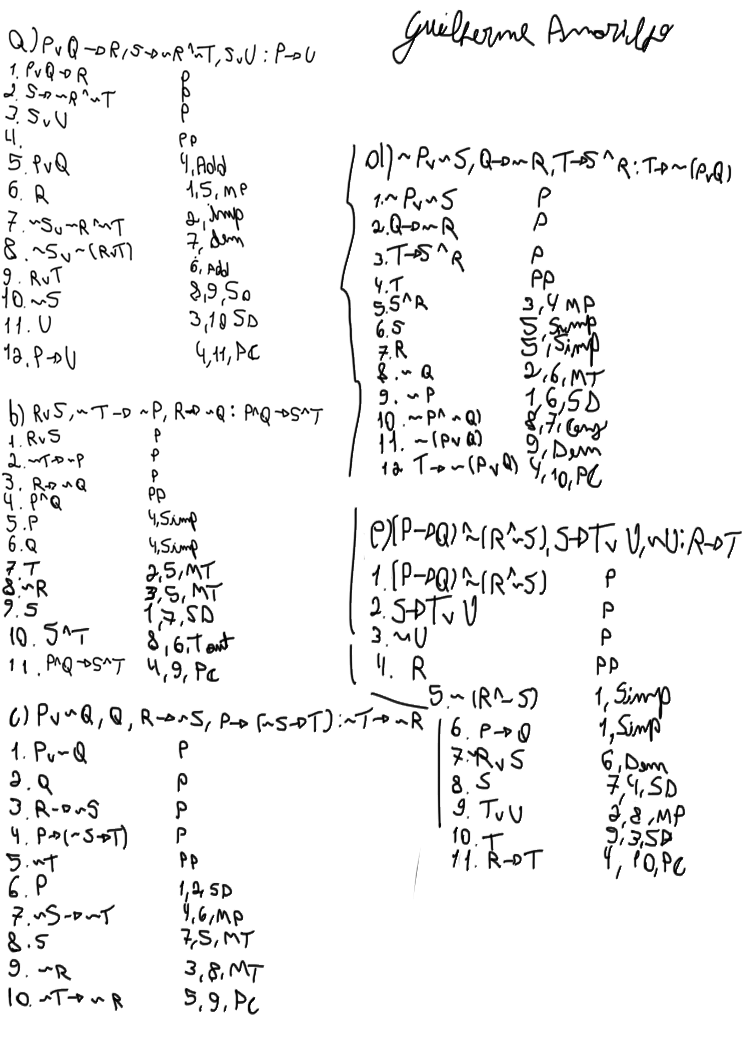 Guilherme
a) P∨Q→R, S→~R^~T, S∨U : P→U
1. P∨Q→R P
2. S→~R^~T P
3. S∨U P
4. PP
5. P∨Q 4, Add
6. R 1,5, MP
7. ~S∨~R^~T 2, Imp
8. ~S∨~(R∨T) 7, Dem
9. R∨T 6, Add
10. ~S 8,9, SD
11. U 3,10 SD
12. P→U 4,11, PC
b) R∨S, ~T→~P, R→~Q : P^Q→S^T
1. R∨S P
2. ~T→~P P
3. R→~Q P
4. P^Q PP
5. P 4, Simp
6. Q 4, Simp
7. T 2,5, MT
8. ~R 3,5, MT
9. S 1,7, SD
10. S^T 8,6,
11. P^Q→S^T 4,9, PC
c) P∨~Q, Q, R→~S, P→(~S→T) : ~T→~R
1. P∨~Q P
2. Q P
3. R→~S P
4. P→(~S→T) P
5. ~T PP
6. P 1,2, SD
7. ~S→~T 4,6, MP
8. S 7,5, MT
9. ~R 3,8, MT
10. ~T→~R 5,9, PC
d) ~P∨~S, Q→~R, T→S^R : T→~(P∨Q)
1. ~P∨~S P
2. Q→~R P
3. T→S^R P
4. T PP
5. S^R 3,4 MP
6. S 5, Simp
7. R 5, Simp
8. ~Q 2,6, MT
9. ~P 1,6, SD
10. ~P^~Q) 8,7, Conj
11. ~(P∨Q) 9, Dem
12 T→~(P∨Q) 4,10, PC
e) (P→Q)^~(R^~S), S→T∨U, ~U : R→T
1. (P→Q)^~(R^~S) P
2. S→T∨U P
3. ~U P
4. R PP
5. ~(R^~S) 1, Simp
6. P→Q 1, Simp
7. ~R∨S 6, Dem
8. S 7,4, SD
9. T∨U 2,8, MP
10. T 9,3, SD
11. R→T 4,10, PC